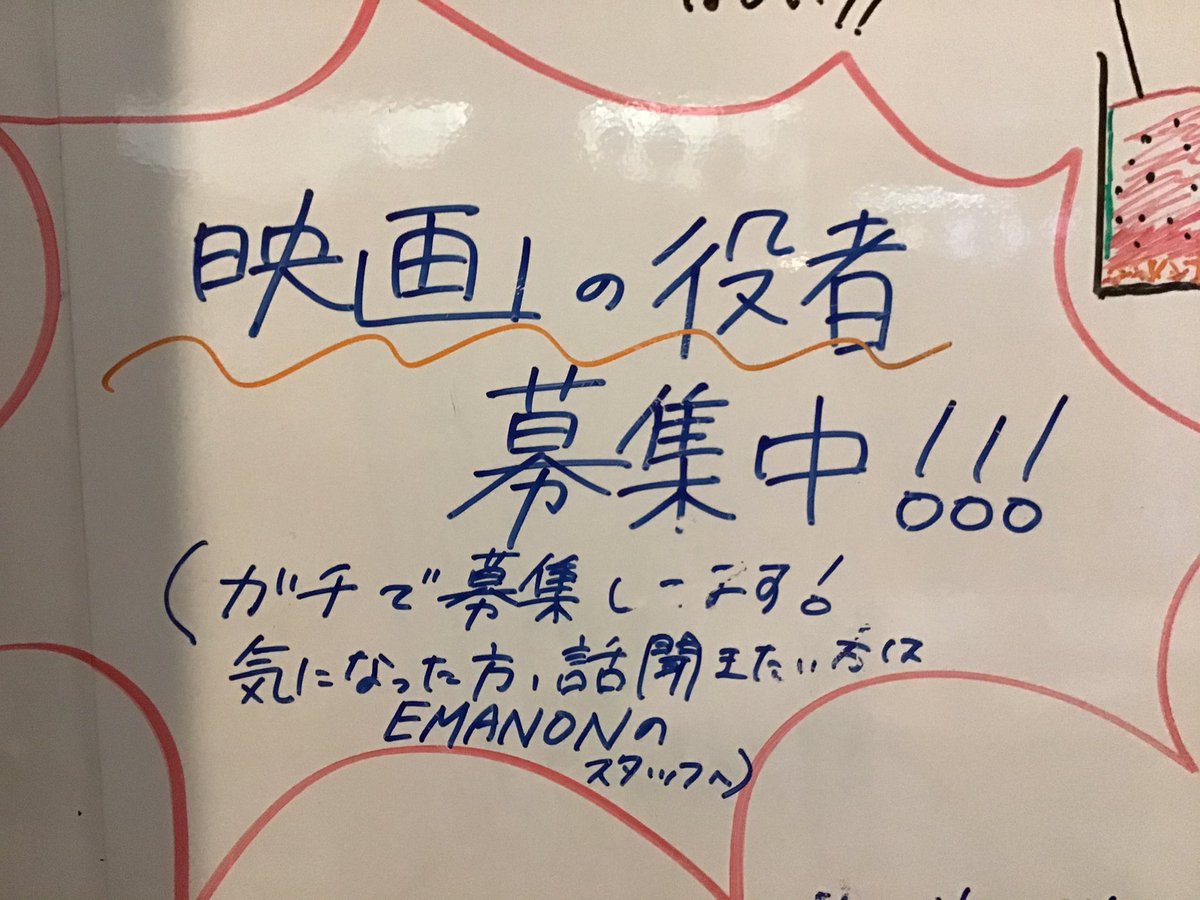 映画の役者
募集中!!!
(ガチで募集してます!
気になった方、話聞きたい方は
EMANONの
スタッフへ)